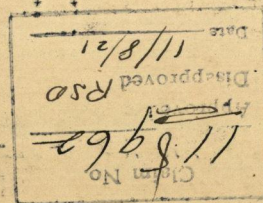 Claim No
118962
Approved
Disapproved RSO
Date 11/8/21